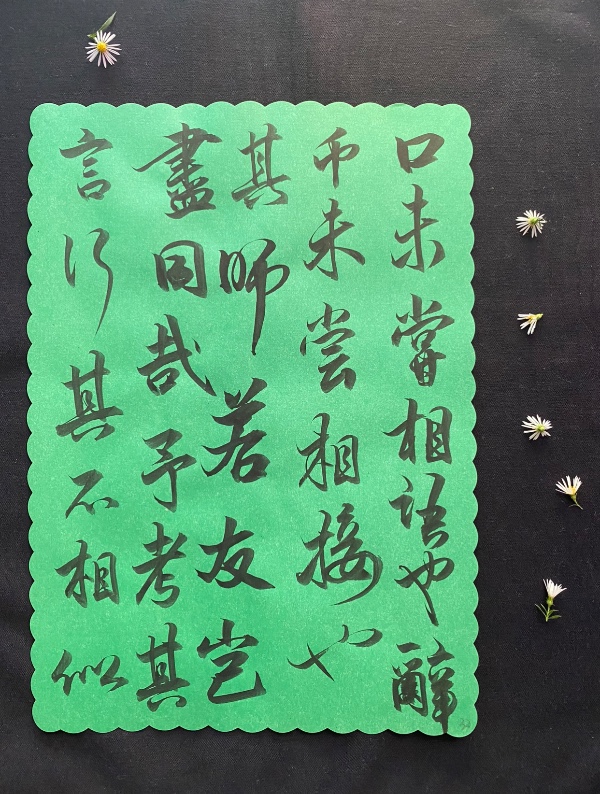 口未嘗相語也辭
币未尝相接也
其师若友岂
盡同哉予考其
言行其不相似